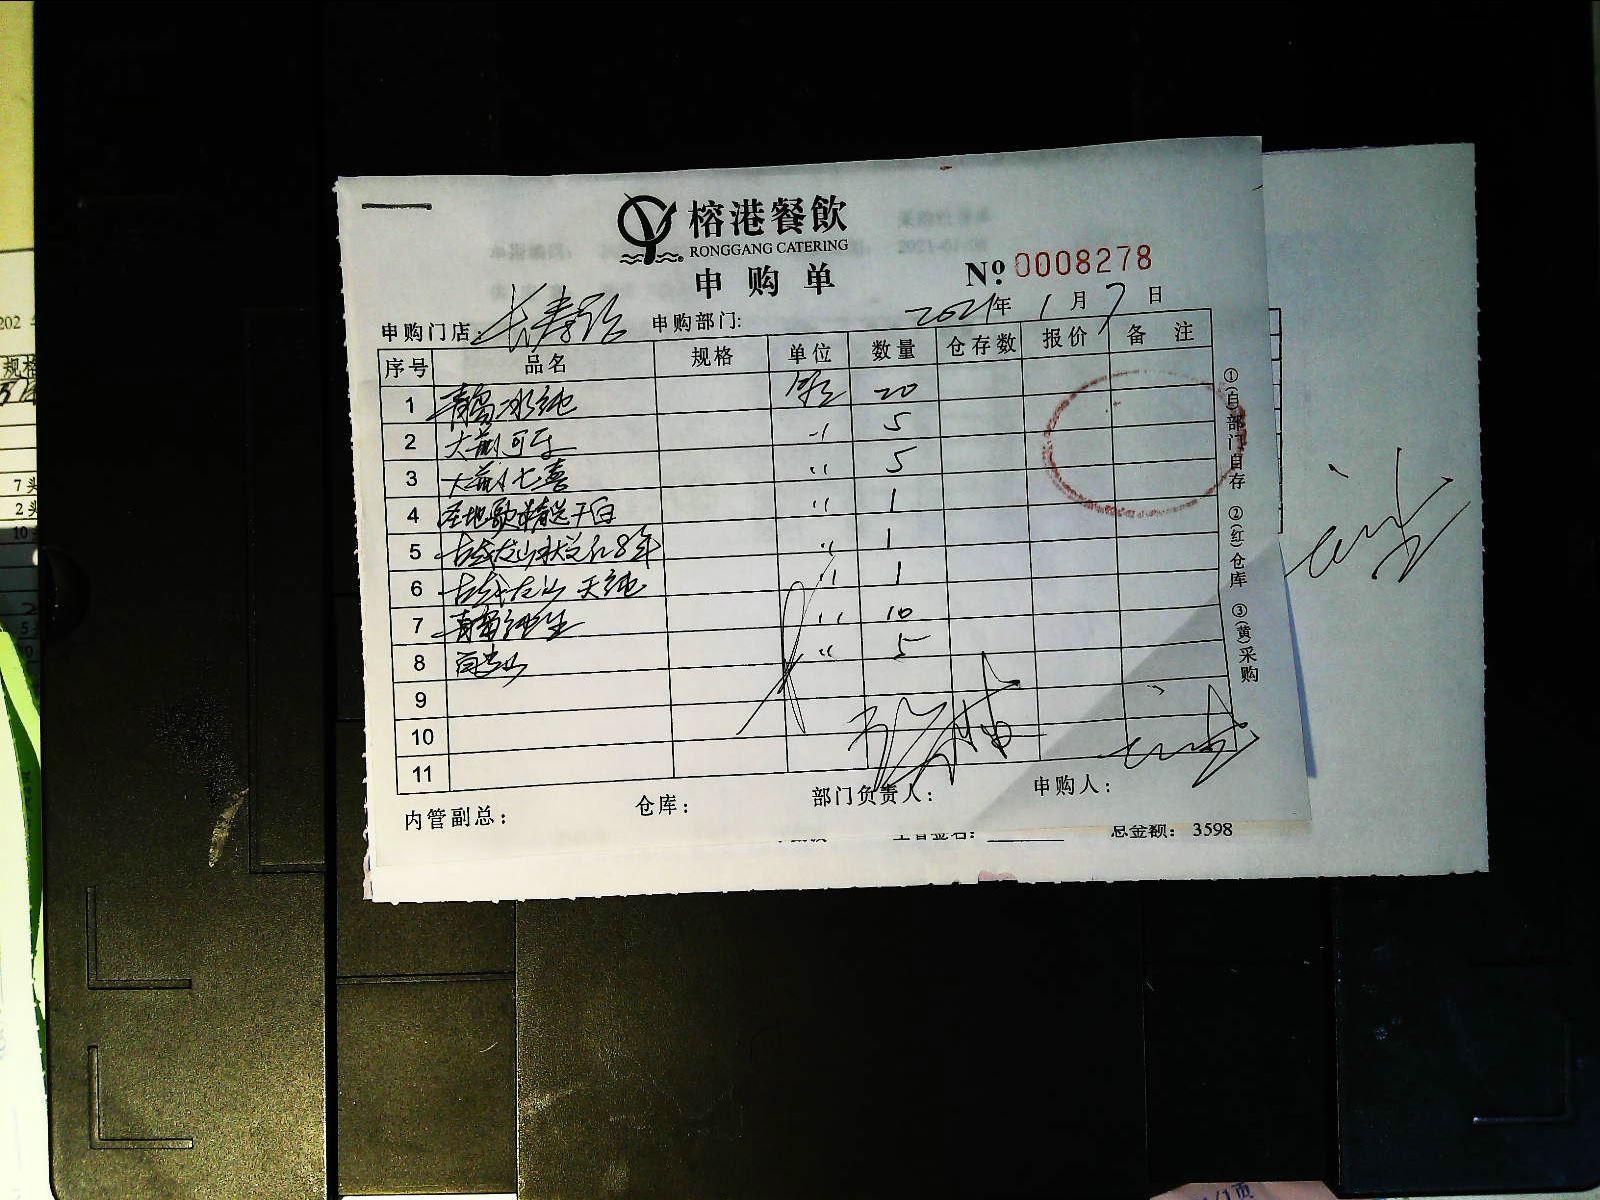 榕港餐飲
RONGGANG CATERING
申购单
№ 0008278
申购门店: 长寿路 申购部门: 2021年 1月 7日
序号 品名 规格 单位 数量 仓存数 报价 备 注
1 青岛冰纯 箱 20
2 大瓶可乐 〃 5
3 大瓶七喜 〃 5
4 干白 〃 1
5 古越龙山状元红8年 〃 1
6 古越龙山天纯 〃 1
7 青岛纯生 〃 10
8 〃 5
9
10
11
内管副总: 仓库: 部门负责人: 申购人:
①(白)部门自存 ②(红)仓库 ③(黄)采购
总金额: 3598
2021-01-08
202
规格
7头
2头
10
1/1页